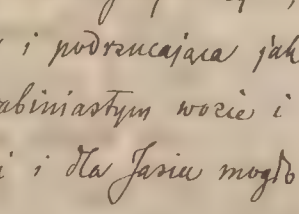 i podrzucająca jak
abiniastym wozie i
i i dla Jasiu mogło